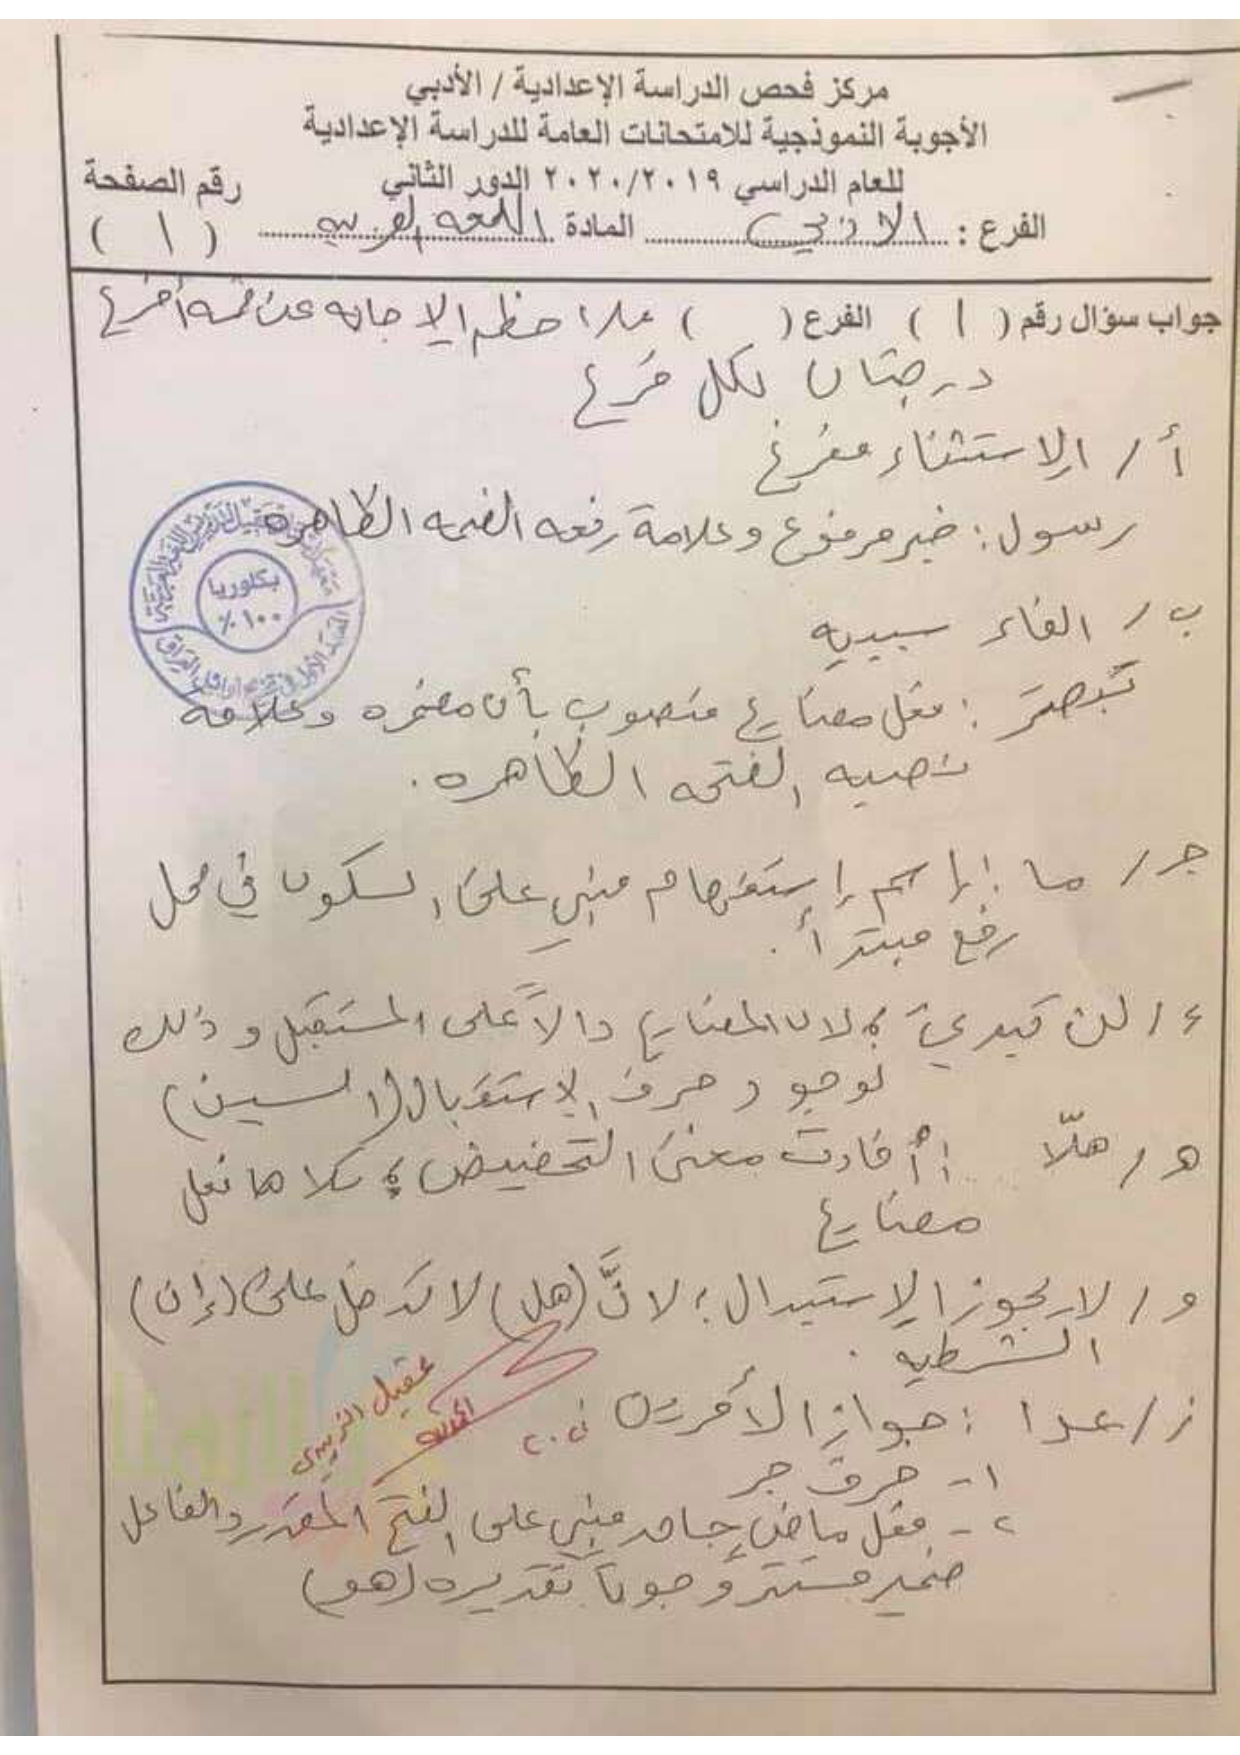 مركز فحص الدراسة الإعدادية / الأدبي
الأجوبة النموذجية للامتحانات العامة للدراسة الإعدادية
للعام الدراسي ٢٠٢٠/٢٠١٩ الدور الثاني
رقم الصفحة
الفرع : الادبي المادة اللغة العربية ( ١ )
جواب سؤال رقم ( ١ ) الفرع ( ) ملاحظه الإجابه عن خمسه أفرع
درجتان لكل فرع
أ / الاستثناء مفرغ
رسول : خبر مرفوع وعلامة رفعه الضمه الظاهره
ب / الفاء سببيه
تبصر : فعل مضارع منصوب بأن مضمره وعلامة
نصبه الفتحه الظاهره .
بكلوريا
١٠٠ ٪
جـ / ما : إسم إستفهام مبني على السكون في محل
رفع مبتدأ .
ء / لن ؛ لان المضارع دالاً على المستقبل وذلك
لوجود حرف الاستقبال (السين)
هـ / هلّا : أفادت معنى التحضيض ؛ تلاها فعل
مضارع
و / لا يجوز الإستبدال ؛ لانَّ (هل) لا تدخل على (إن)
الشرطيه .
ز / عدا : جواز الأمرين
١- حرف جر
٢- فعل ماضٍ جامد مبني على الفتح المقدر والفاعل
ضمير مستتر وجوباً تقديره (هو)
عقيل الزبيدي